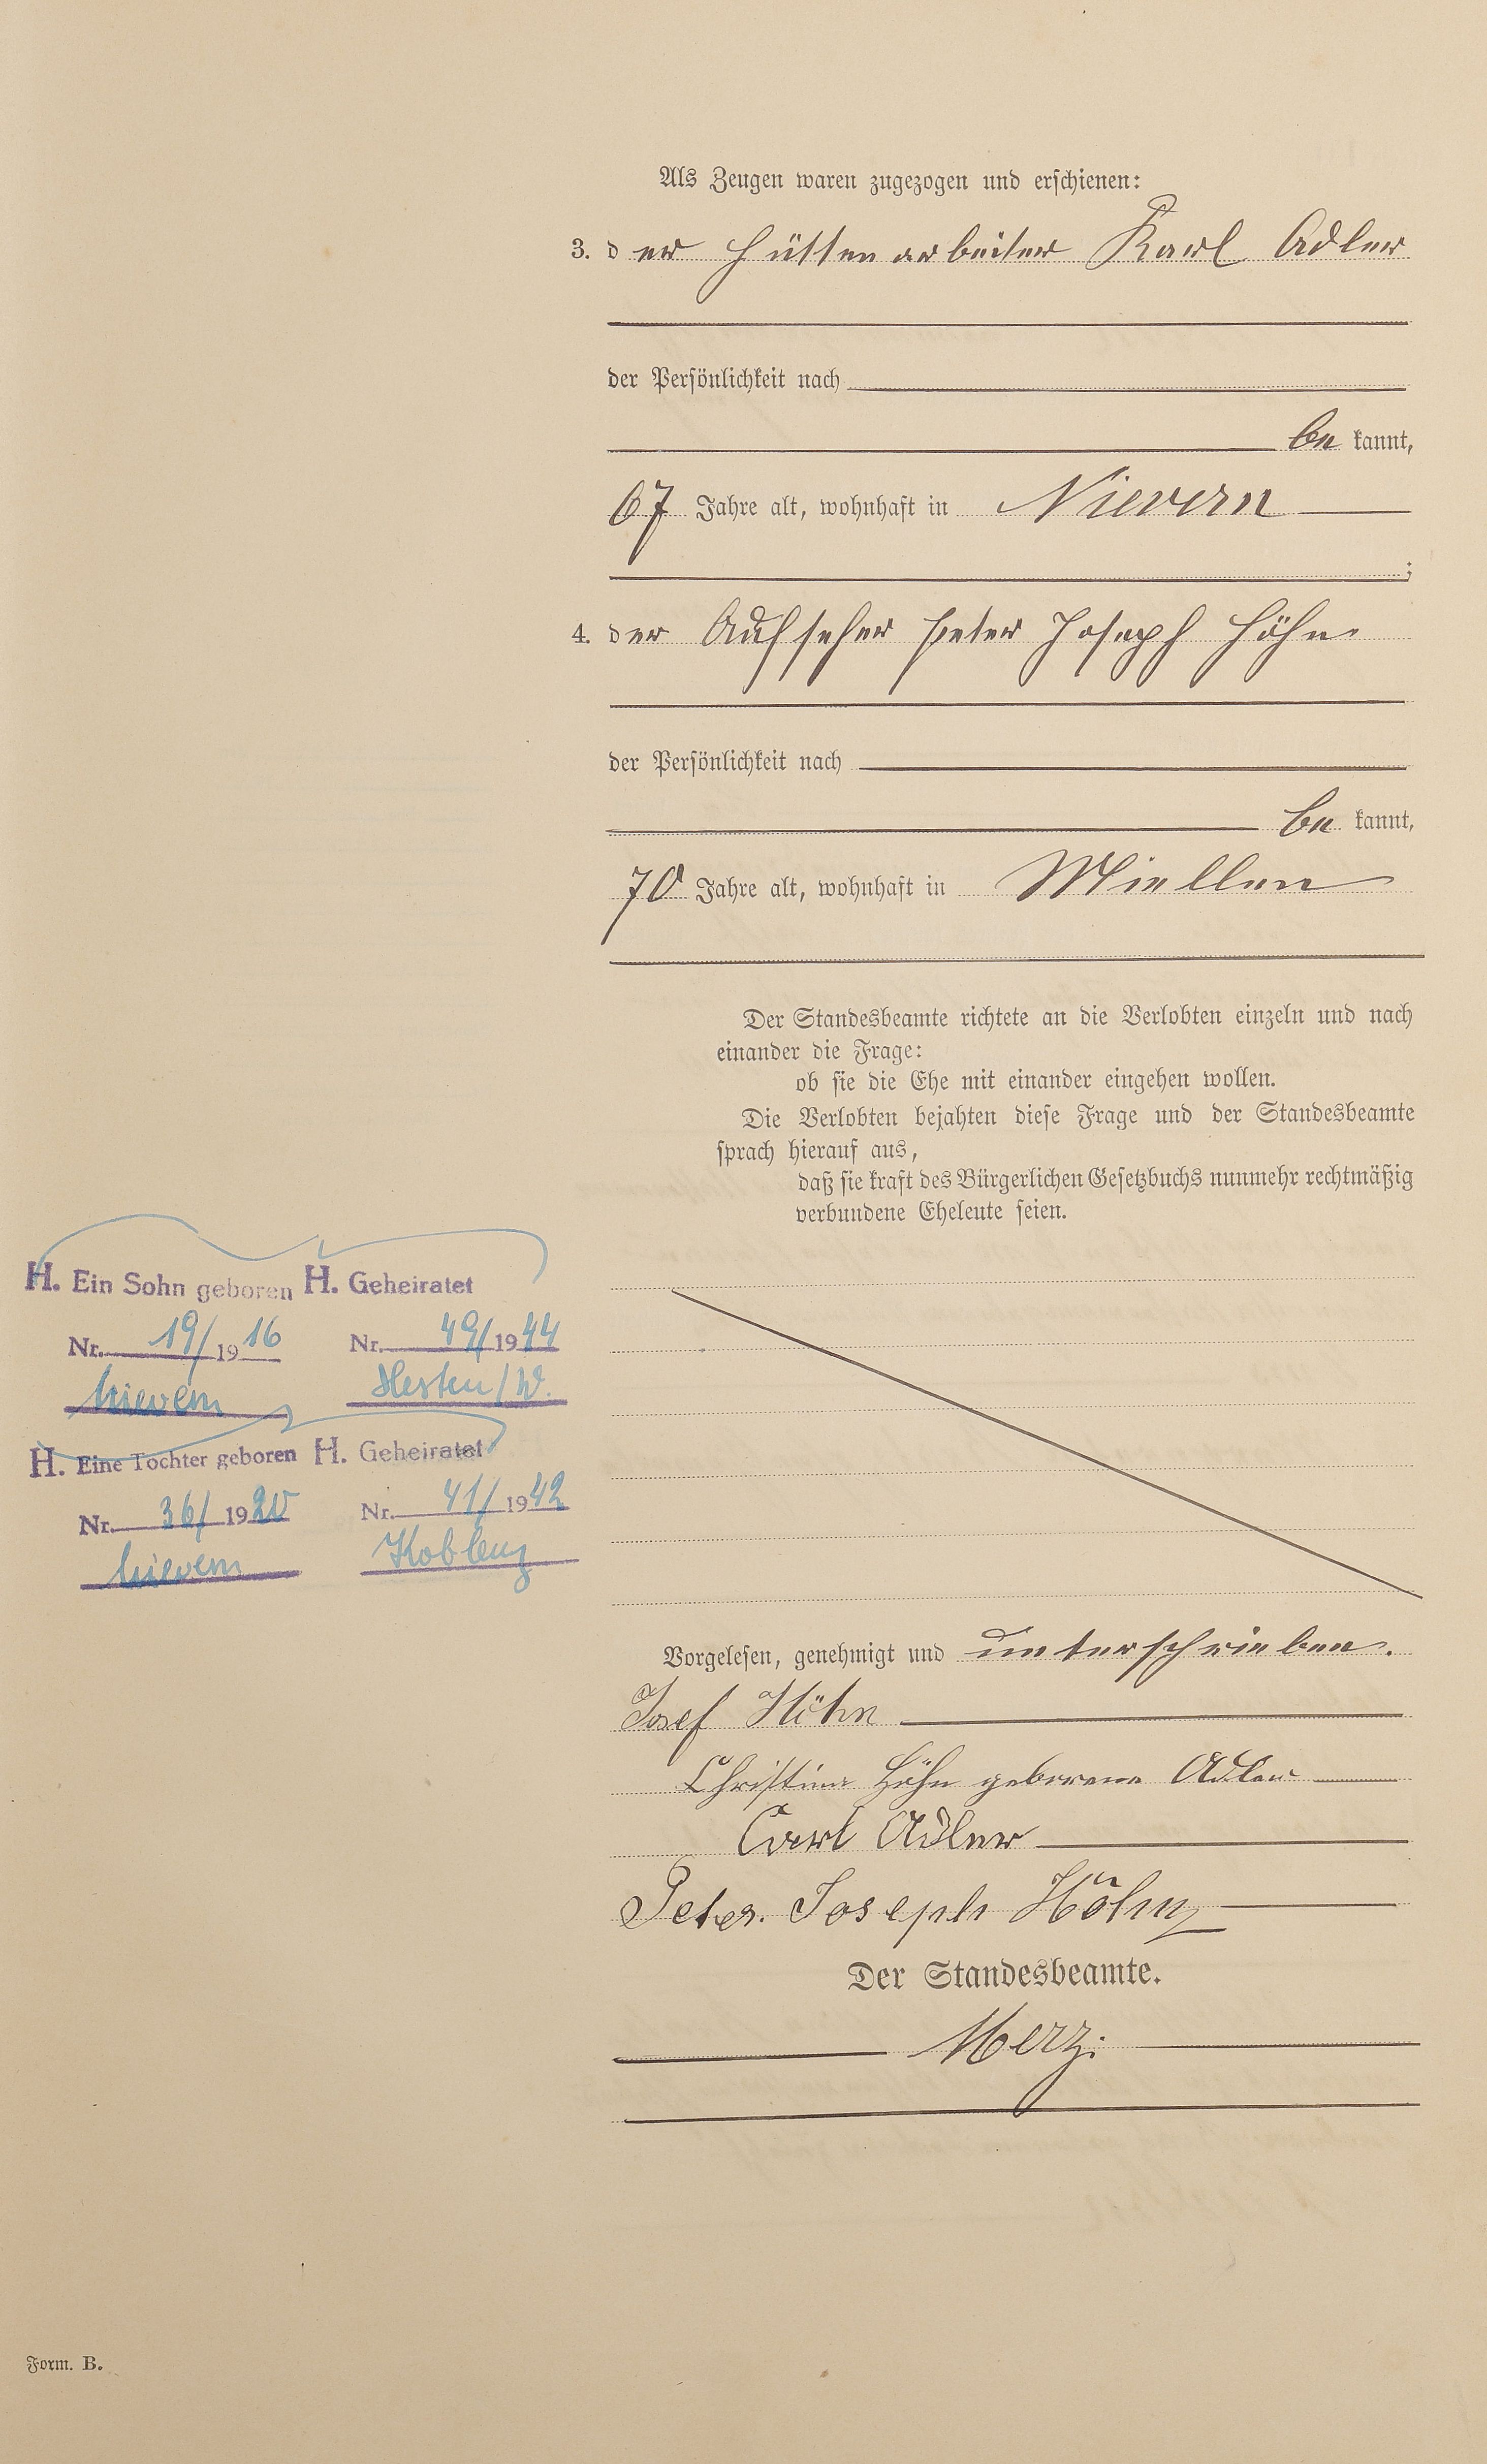 Als Zeugen waren zugezogen und erschienen:
3. der Hüttenarbeiter Karl Adler
der Persönlichkeit nach
be kannt,
67 Jahre alt, wohnhaft in Nievern
;
4. der Aufseher Peter Joseph Höhn
der Persönlichkeit nach
be kannt,
70 Jahre alt, wohnhaft in Miellen
Der Standesbeamte richtete an die Verlobten einzeln und nach
einander die Frage:
ob sie die Ehe mit einander eingehen wollen.
Die Verlobten bejahten diese Frage und der Standesbeamte
sprach hierauf aus,
daß sie kraft des Bürgerlichen Gesetzbuchs nunmehr rechtmäßig
verbundene Eheleute seien.
H. Ein Sohn geboren H. Geheiratet
Nr. 19/1916 Nr. 49/1944
Nievern
H. Eine Tochter geboren H. Geheiratet
Nr. 36/1920 Nr. 41/1942
Nievern Koblenz
Vorgelesen, genehmigt und unterschrieben.
Josef Höhn
Christina Höhn geborene Adler
Carl Adler
Peter. Joseph Höhn
Der Standesbeamte.
Merz.
Form. B.